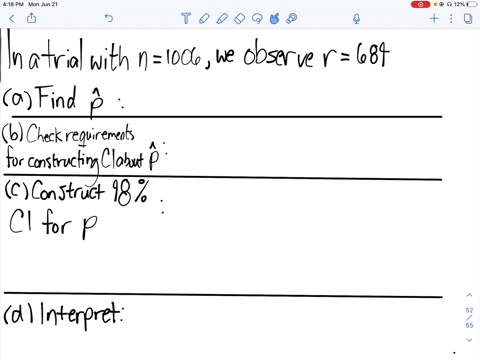 4:18 PM Mon Jun 21
12%
In a trial with n=1006, we observe r=684
(a) Find p̂ :
(b) Check requirements
for constructing CI about p̂ :
(c) Construct 98% :
CI for p
(d) Interpret:
52
/
55